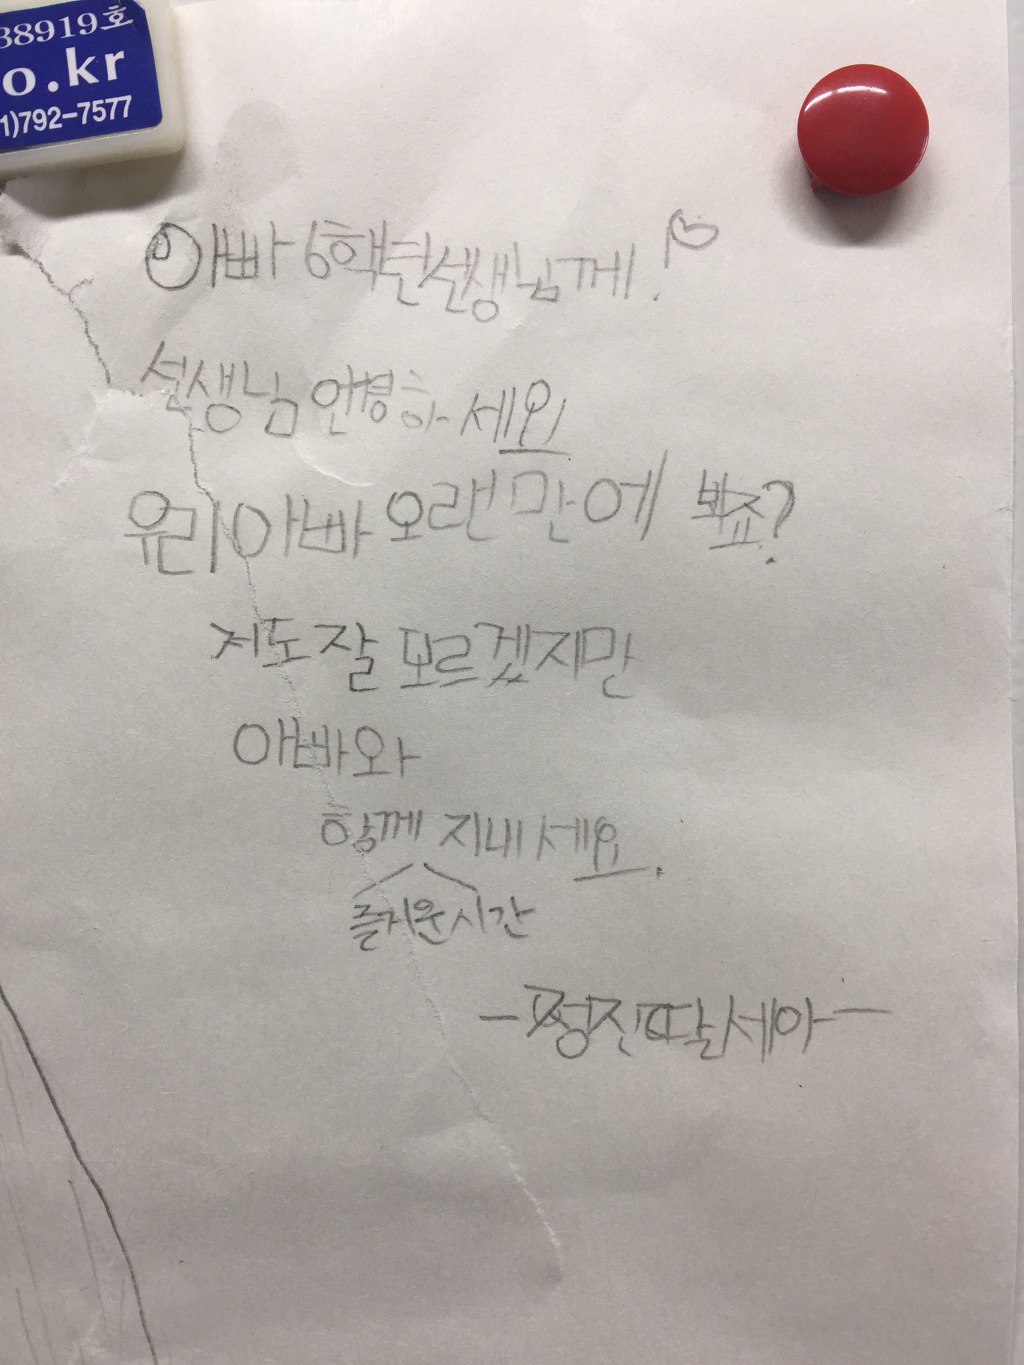 38919호
o.kr
1)792-7577
아빠 6핵년선생님께!
선생님 언병하세요
유리아빠 오랜만에 봐죠?
저도 잘 모르겠지만
아빠와
함께 지내세요.
즐거운시간
-정진딸세아-